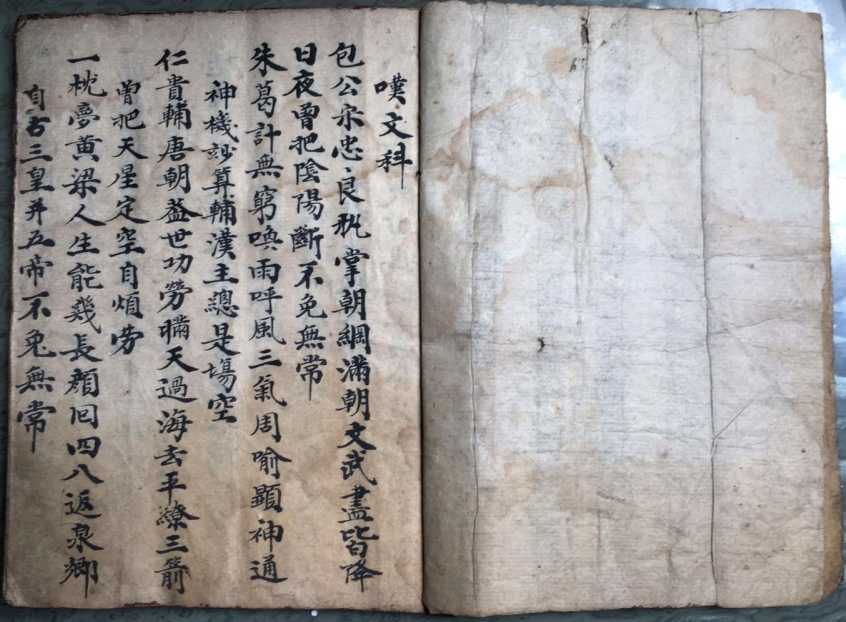 嘆文科
包公宋忠良執掌朝綱滿朝文武盡皆降
日夜曾把陰陽斷不免無常
朱葛計無窮喚雨呼風三氣周喻顯神通
神機妙算輔漢主總是塲空
仁貴輔唐朝蓋世功勞瞞天過海去平繚三箭
曾把天星定空自煩勞
一枕夢黃梁人生能幾長顏囘四八返泉鄉
自古三皇并五帝不免無常